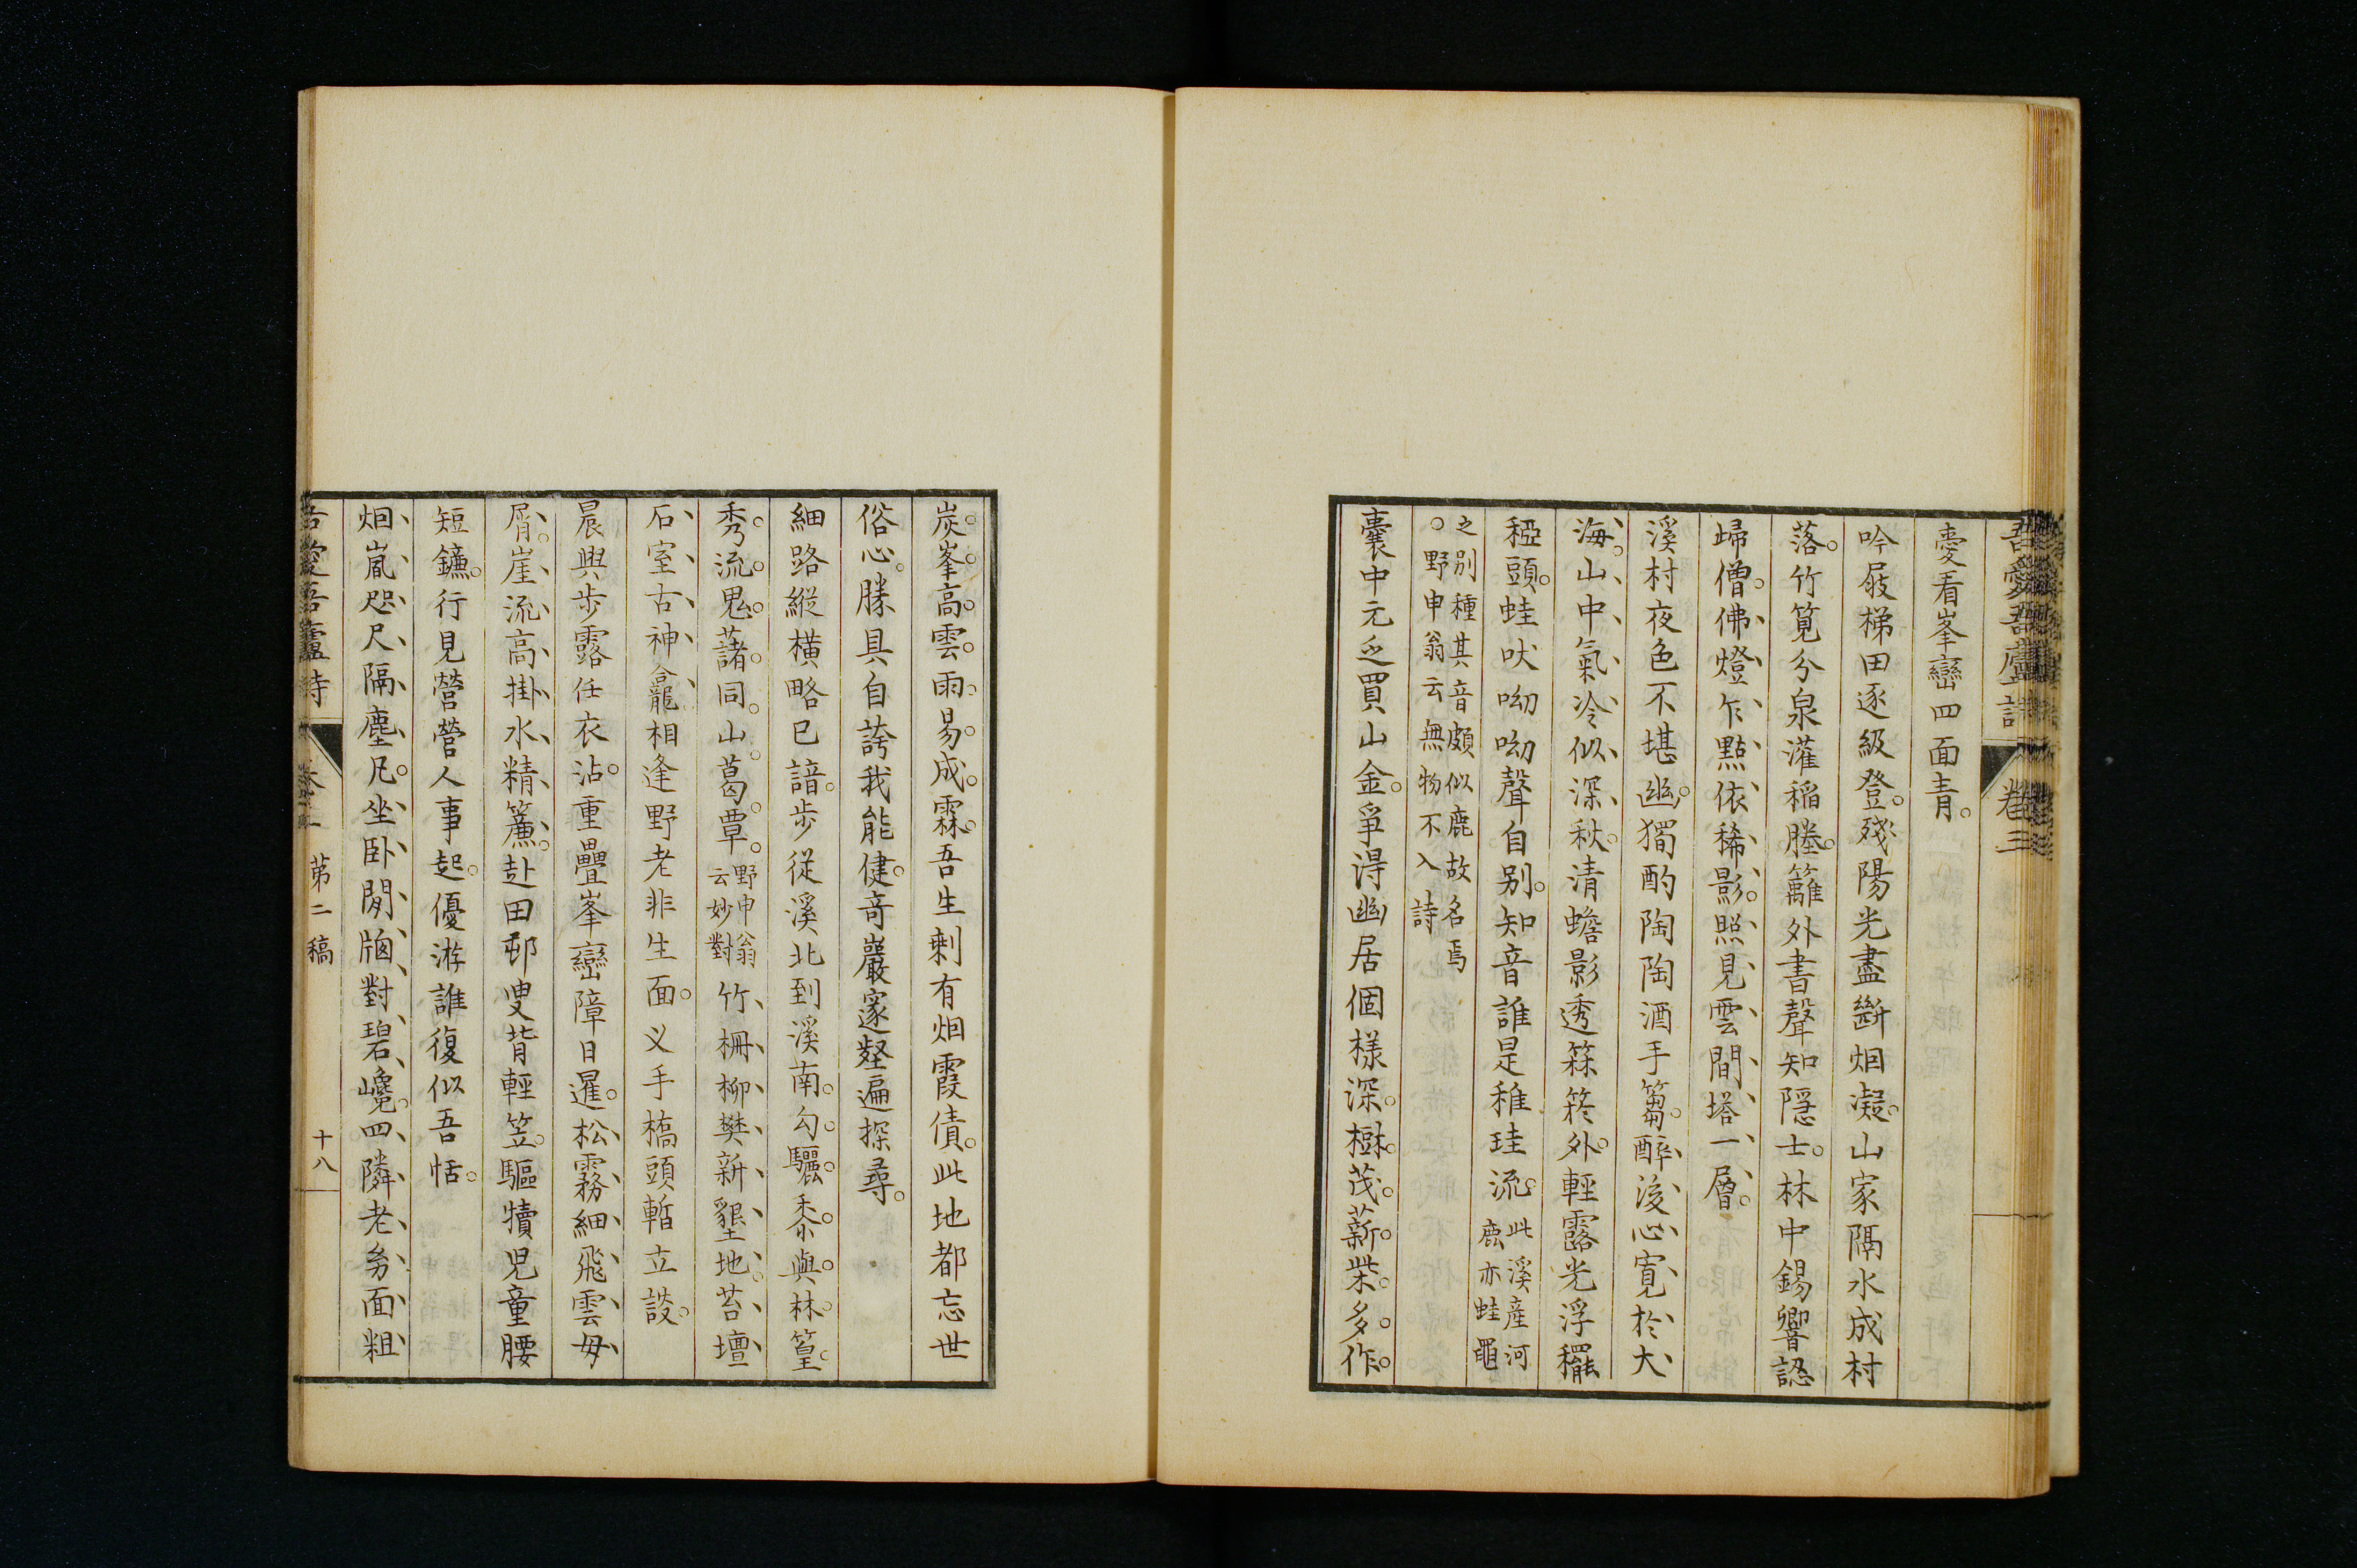 吾愛吾廬詩 卷三
憂看峯巒四面青。
吟屐梯田逐級登。殘陽光盡斷烟凝。山家隔水成村
落。竹筧分泉灌稲塍。籬外書聲知隱士。林中錫響認
歸僧。佛燈乍點依稀影。照見雲間塔一層。
溪村夜色不堪幽。獨酌陶陶酒手篘。醉後心寬於大
海。山中氣冷似深秋。清蟾影透篠簩外。輕露光浮䆉
稏頭。蛙吠呦呦聲自別。知音誰是稚珪流。此溪產河鹿亦蛙黽
之別種其音頗似鹿故名焉
。野申翁云無物不入詩
囊中元乏買山金。爭得幽居個樣深。樹茂薪柴多作
炭。峯高雲雨易成霖。吾生剩有烟霞債。此地都忘世
俗心。勝具自誇我能健。奇巖邃壑遍探尋。
細路縱橫略已諳。步從溪北到溪南。勾驪黍與林篁
秀。流鬼藷同山葛覃。野申翁云妙對竹柵柳樊新墾地。苔壇
石室古神龕。相逢野老非生面。义手橋頭暫立談。
晨興步露任衣沾。重疊峯巒障日暹。松霧細飛雲母
屑。崖流高掛水精簾。赴田邨叟背輕笠。驅犢児童腰
短鐮。行見營營人事起。優游誰復似吾恬。
烟嵐咫尺隔塵凡。坐卧閒牕對碧巉。四隣老㓜面粗
吾愛吾廬詩 卷三 第二稿 十八